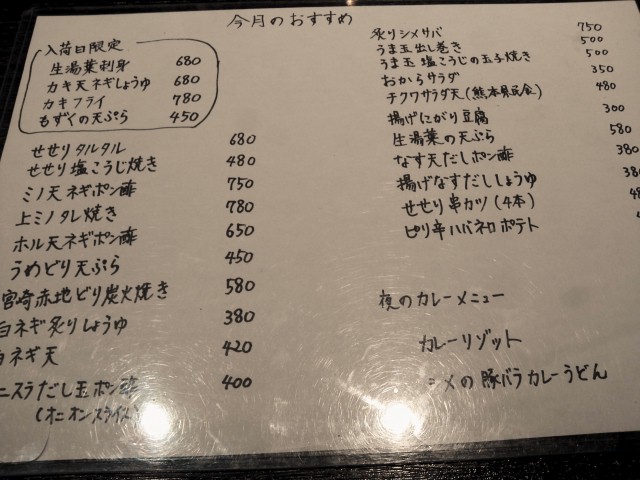 今月のおすすめ
入荷日限定
生湯葉刺身 680
カキ天ネギしょうゆ 680
カキフライ 780
もずくの天ぷら 450
せせりタルタル 680
せせり塩こうじ焼き 480
ミノ天ネギポン酢 750
上ミノタレ焼き 780
ホル天ネギポン酢 650
うめどり天ぷら 450
宮崎赤地どり炭火焼き 580
白ネギ炙りしょうゆ 380
白ネギ天 420
ニスラだし玉ポン酢 400
(オニオンスライス)
炙りシメサバ 750
うま玉出し巻き 500
うま玉 塩こうじの玉子焼き 500
おからサラダ 350
チクワサラダ天(熊本県民食) 480
揚げにがり豆腐 300
生湯葉の天ぷら 580
なす天だしポン酢 380
揚げなすだししょうゆ 38
せせり串カツ(4本)
ピリ辛ハバネロポテト
夜のカレーメニュー
カレーリゾット
〆の豚バラカレーうどん